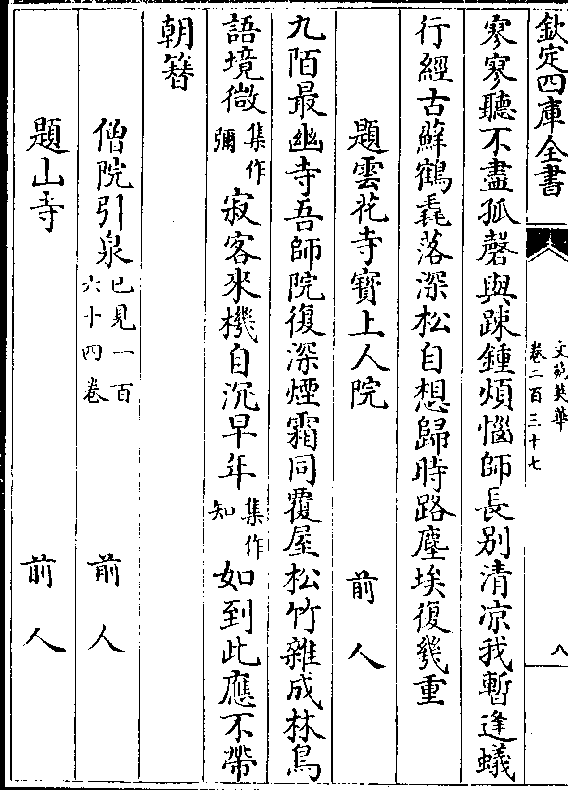 欽定四庫全書
文苑英華
卷二百三十七
八
寥寥聽不盡孤磬與踈鍾煩惱師長别清凉我暫逢蟻
行經古蘚鶴毳落深松自想歸時路塵埃復幾重
題雲花寺寳上人院 前人
九陌最幽寺吾師院復深煙霜同覆屋松竹雜成林鳥
語境㣲集作彌寂客來機自沉早年集作知如到此應不帶
朝簪
僧院引泉已見一百六十四卷 前人
題山寺 前人